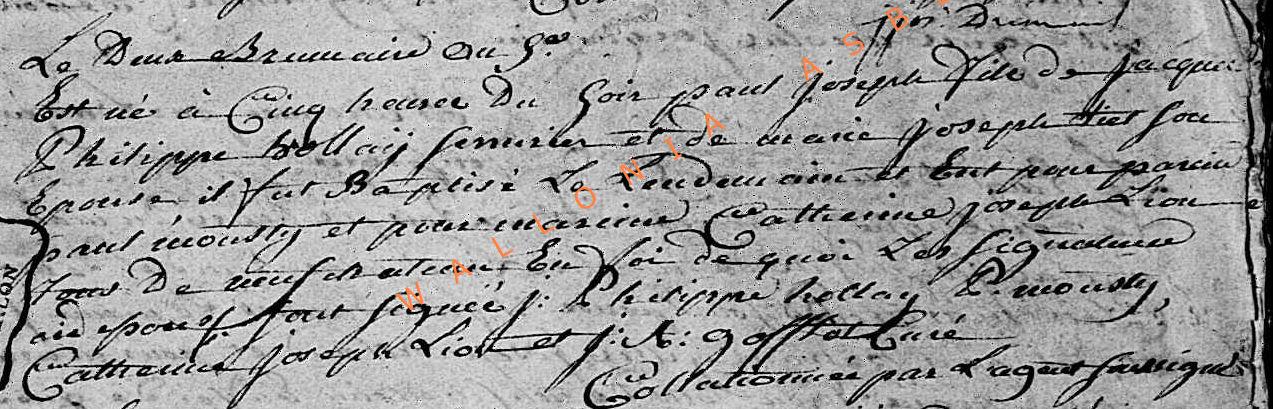 Le Deux Brumaire an 5e
Est né à Cinq heures Du Soir paul joseph Fils de jacque
Philippe hollay serrurier et de marie joseph Liet son
Epouse il fut Baptisé Le Lendemain et Eut pour parain
paul mousty et pour marinne Catherine joseph Lion
tous De neufchateau En foi de quoi Les signatures
sont signéés j: Philippe hollay P. mousty
Catherine joseph Lion et j: N: goffot Curé
Collationnée par L'agent sussigné
WALLONIA ASB